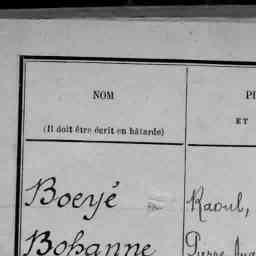 NOM
(Il doit être écrit en bâtarde)
ET
Boeyé Raoul,
Bohanne Pierre